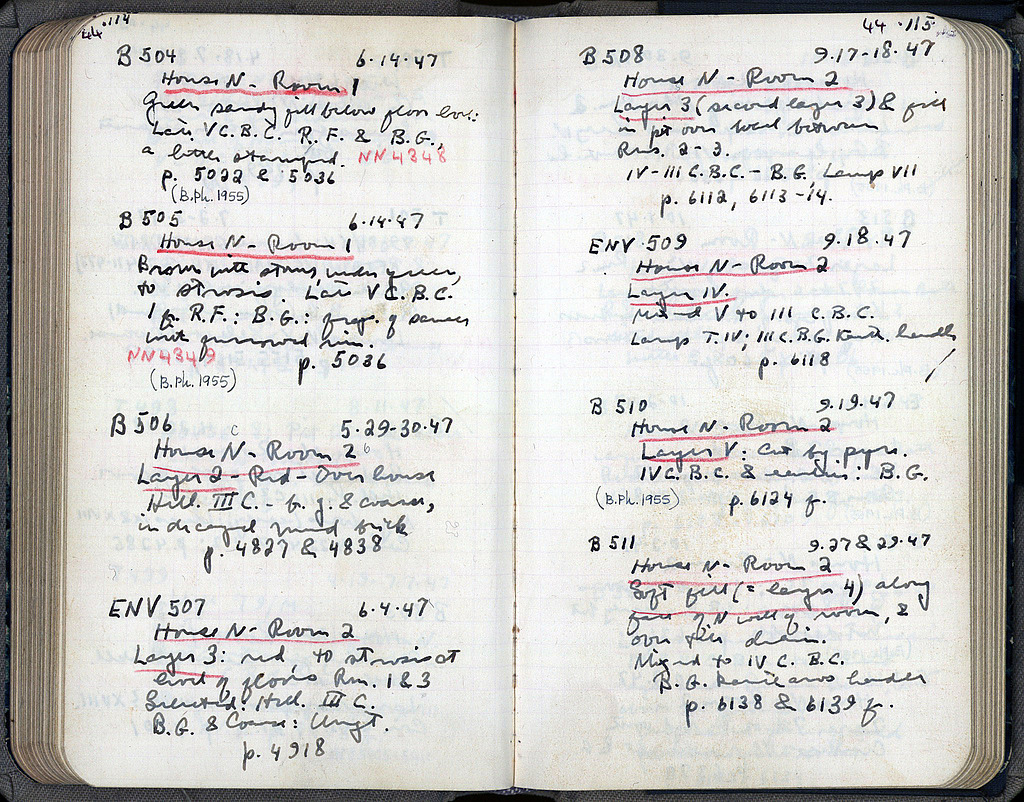 44 · 114
B 504 6·14·47
House N - Room 1
Green sandy fill below floor
Late V C. B.C. R.F. & B.G.,
a later stamped. NN 4348
p. 5022 & 5036
(B.Ph. 1955)
B 505 6·14·47
House N - Room 1
Brown with stones under green,
to strosis. Late V C. B.C.
1 fr. R.F.: B.G.: frag. of saucer
with grooved rim.
NN 4349 p. 5036
(B.Ph. 1955)
B 506 5·29-30·47
c
House N - Room 2 6
Layer 2 - Red - Over house
Hell. III C. - B.G. & coarse,
in decayed mud brick
p. 4827 & 4838
ENV 507 6·4·47
House N - Room 2
Layer 3: red to strosis at
level of floors Rm. 1 & 3
Selected: Hell. III C.
B.G. & Coarse: Ungt.
p. 4918
44 · 115
B 508 9·17-18·47
House N - Room 2
Layer 3 (second layer 3) & fill
in pit over wall between
Rms. 2-3.
IV-III C. B.C. - B.G. Lamp VII
p. 6112, 6113-14.
ENV · 509 9·18·47
House N - Room 2
Layer IV.
Mixed V to III C. B.C.
Lamp T. IV; III C. B.G. Kanth. handles
p. 6118
B 510 9·19·47
House N - Room 2
Layer V: Cut by pyre.
IV C. B.C. & earlier. B.G.
(B.Ph. 1955) p. 6124 f.
B 511 9·27 & 29·47
House N - Room 2
Soft fill (= layer 4) along
face of N wall of room, &
over tile drain.
Mixed to IV C. B.C.
B.G. Kantharos handle
p. 6138 & 6139 f.